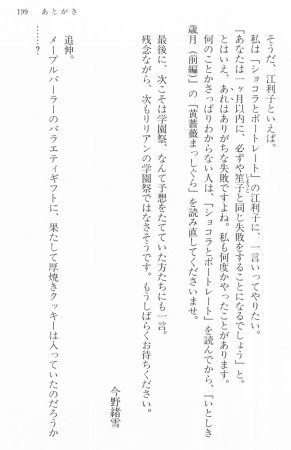 199　あとがき
そうだ、江利子といえば。
私は「ショコラとポートレート」の江利子に、一言いってやりたい。
「あなたは一ヶ月以内に、必ずや笙子と同じ失敗をすることになるでしょう」と。
とはいえ、あれはありがちな失敗ですよね。私も何度かやったことがあります。
何のことかさっぱりわからない人は、「ショコラとポートレート」を読んでから、『いとしき
歳月（前編）』の「黄薔薇まっしぐら」を読み直してくださいませ。
最後に、次こそは学園祭、なんて予想をたてていた方たちにも一言。
残念ながら、次もリリアンの学園祭ではなさそうです。もうしばらくお待ちください。
今野緒雪
追伸。
メープルパーラーのバラエティギフトに、果たして厚焼きクッキーは入っていたのだろうか
……？